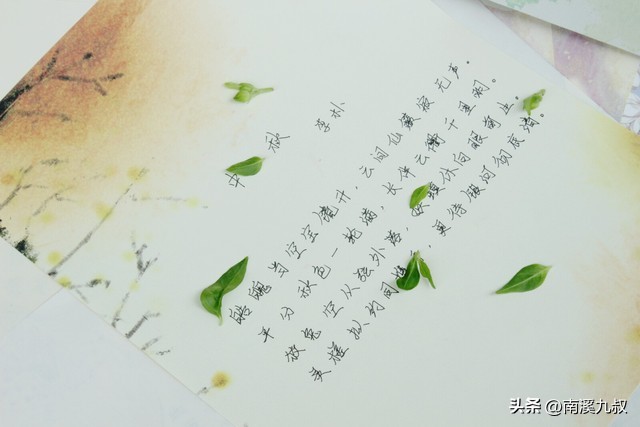 中秋
李朴
皓魄当空宝镜升,云间仙籁寂无声。
平分秋色一轮满,长伴云衢千里明。
狡兔空从弦外落,妖蟆休向眼前生。
灵槎拟约同携,更待银河彻底清。
头条 @南溪九叔